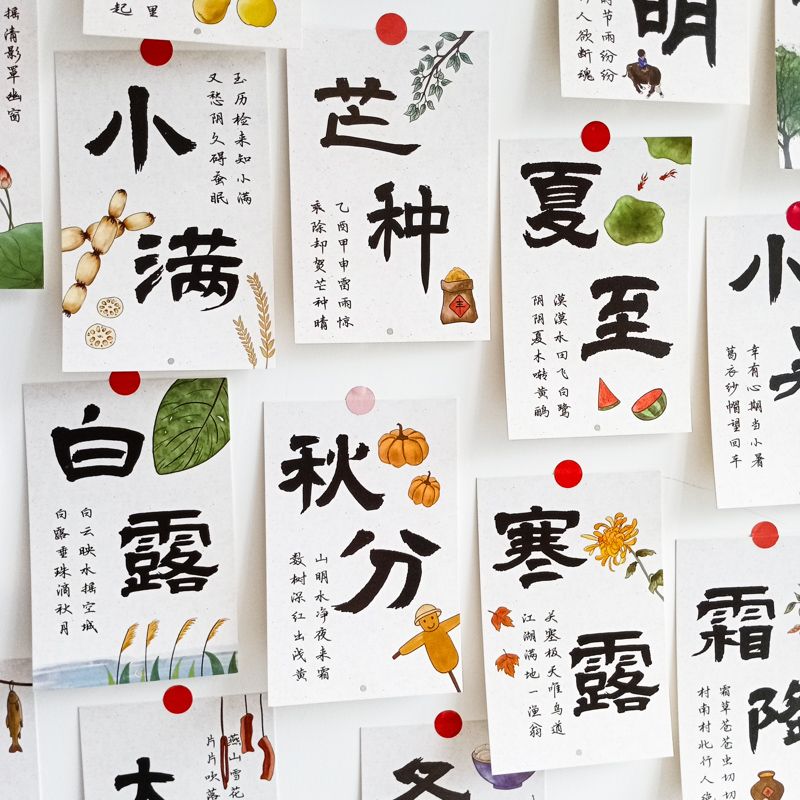 摇清影罩幽窗
起
里
小满
玉历检来知小满
又愁阴久碍蚕眠
芒种
乙酉甲申雷雨惊
乘除却贺芒种晴
明
时节雨纷纷
人欲断魂
夏至
漠漠水田飞白鹭
阴阴夏木啭黄鹂
小
幸有心期当小暑
葛衣纱帽望回车
白露
白云映水摇空城
白露垂珠滴秋月
秋分
山明水净夜来霜
数树深红出浅黄
寒露
关塞极天唯鸟道
江湖满地一渔翁
霜降
霜草苍苍虫切切
村南村北行人
燕山雪花
片片吹落
冬
丰